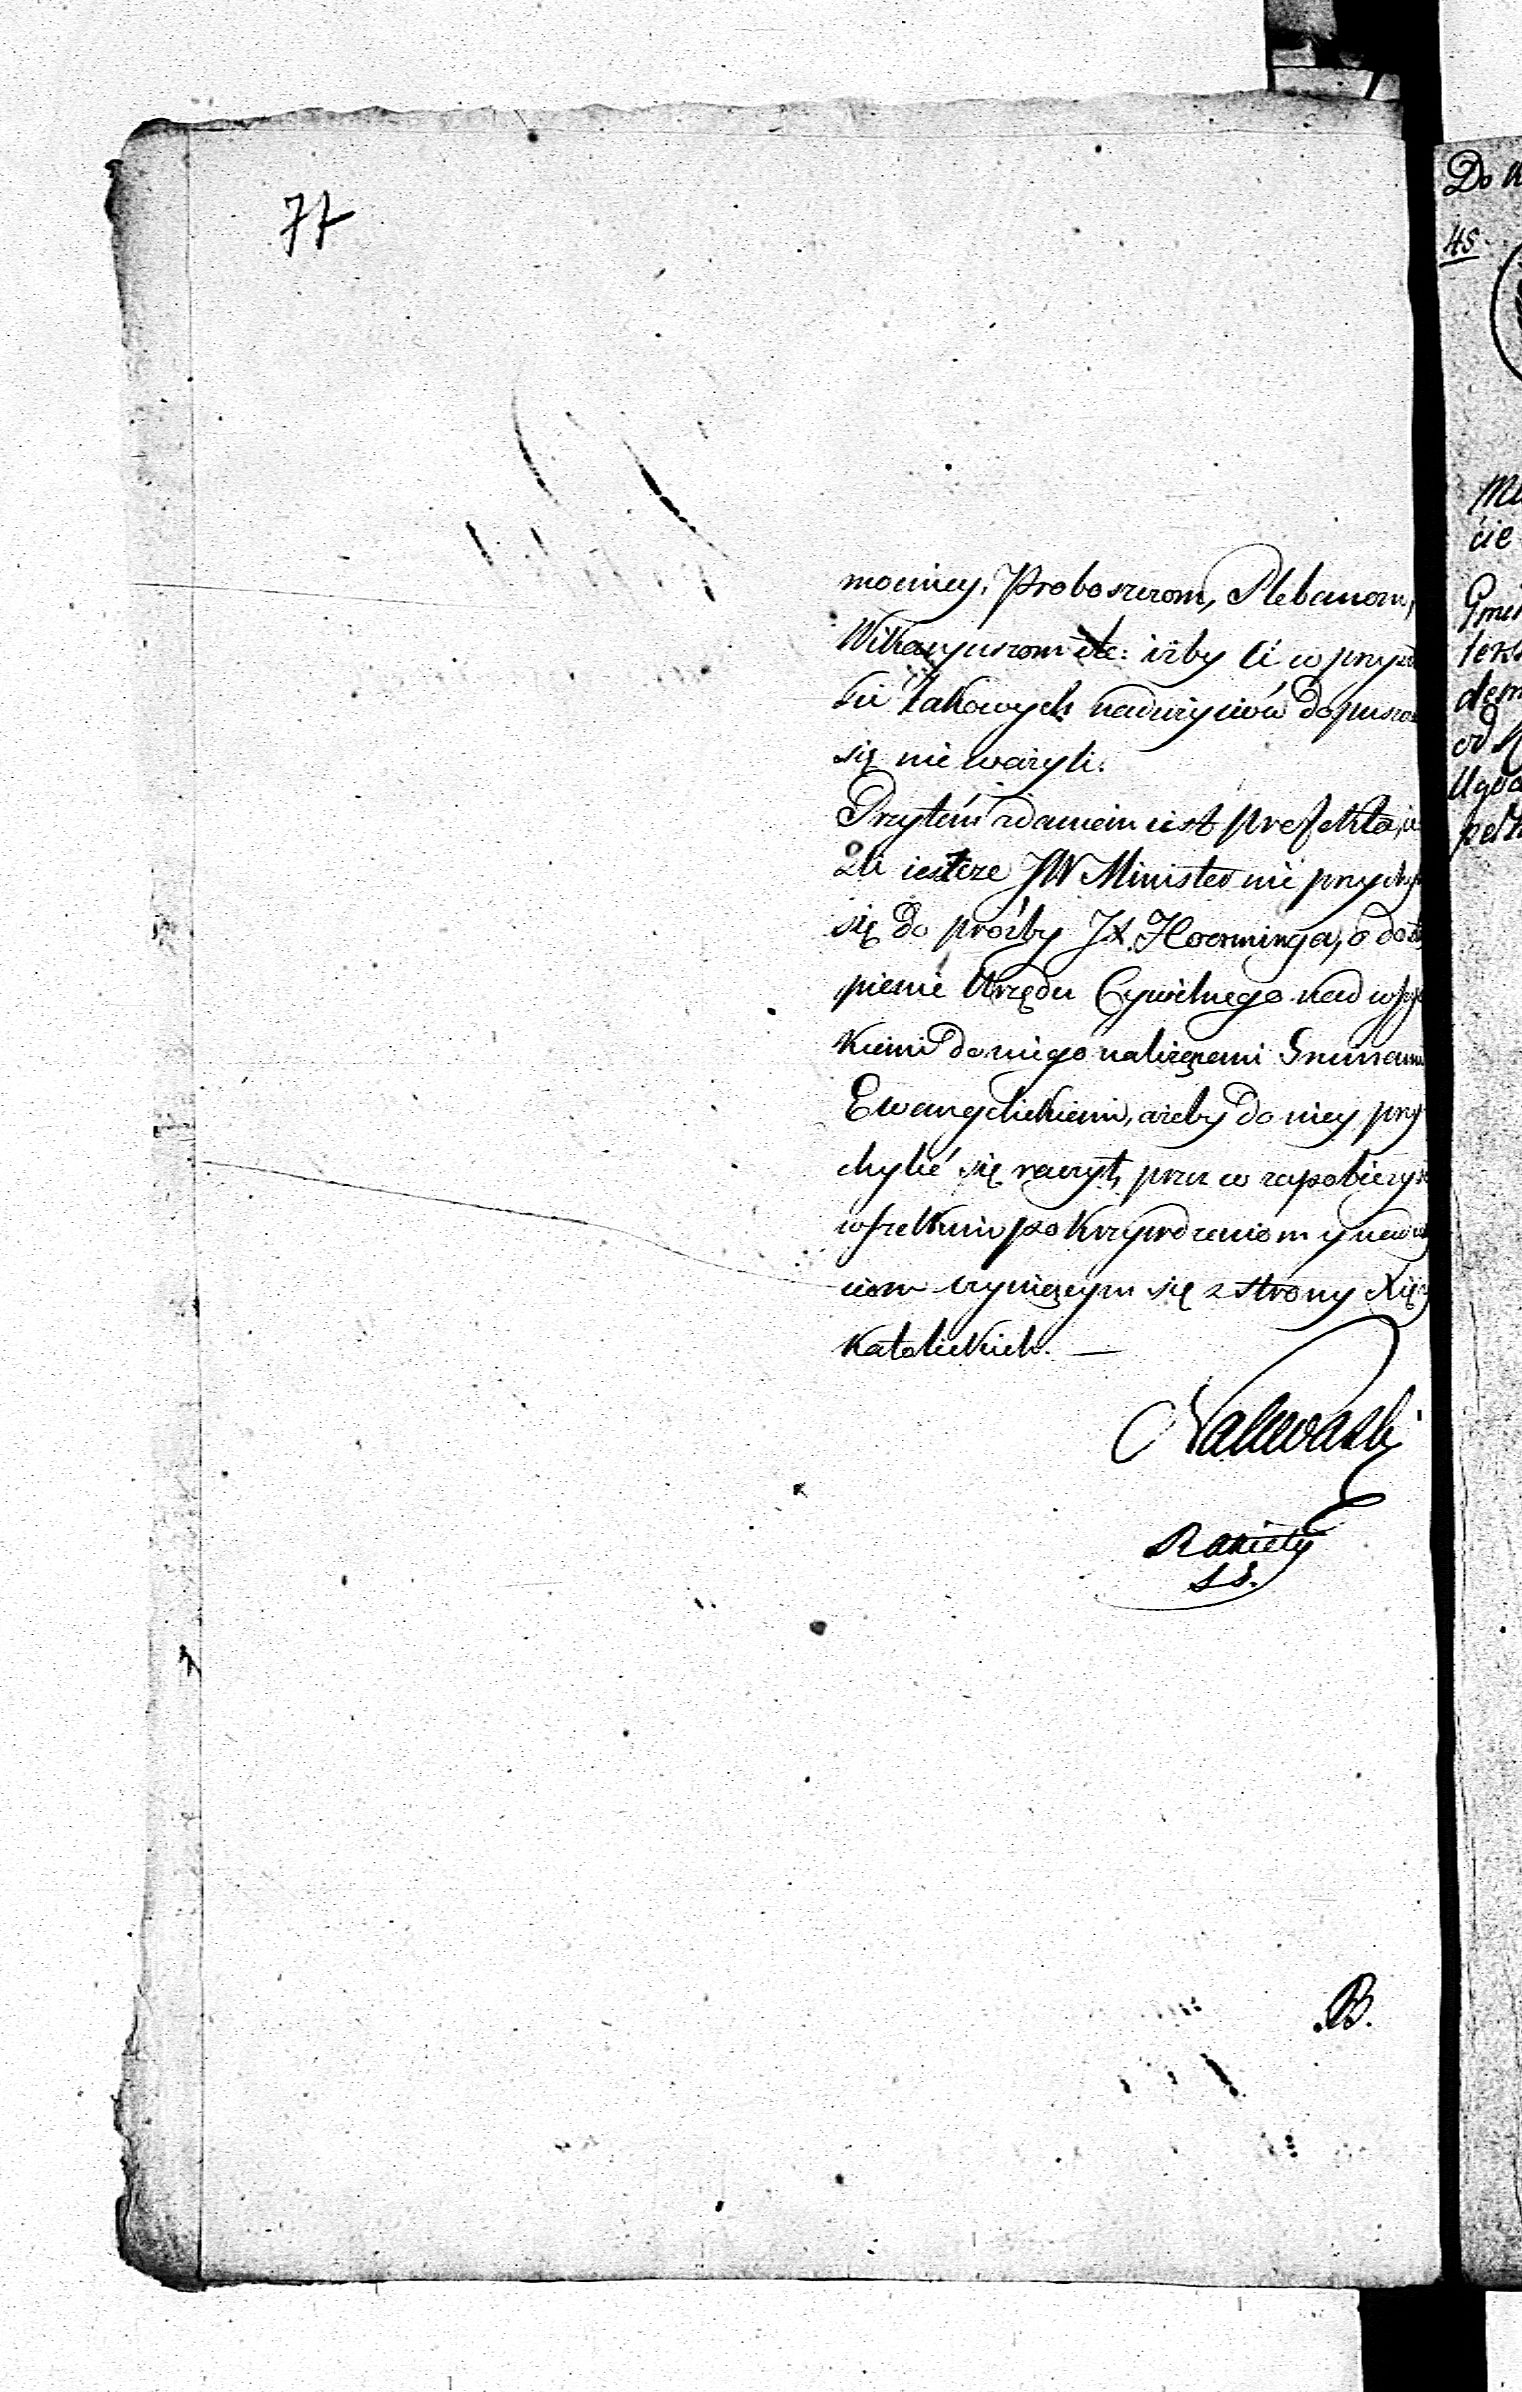 77
mocniey, Proboszczom, Plebanom,
Wikaryuszom etc: iżby ci w przysz
takowych nadużyciów dopuszcz
się nie ważyli.
Przytém zdaniem iest prefekta, ie
żeli ieszcze JW Minister nie przychyl
się do próźby JX. Hoerninga, o dozt
pienie Urzędu Cywilnego nad wszys
kiemi do niego należącemi Gminami
Ewangelickiemi, ażeby do niey przy
chylić się raczył, przez co zapobieży się
wszelkim pokrzywdzeniom y naduży
ciom czyniącym się z strony Xięży
Katolickich. —
Nalewaski
Rakiety
SS.
B.
Do
48.
cie
Gmi
tek
dem
od
Ugod